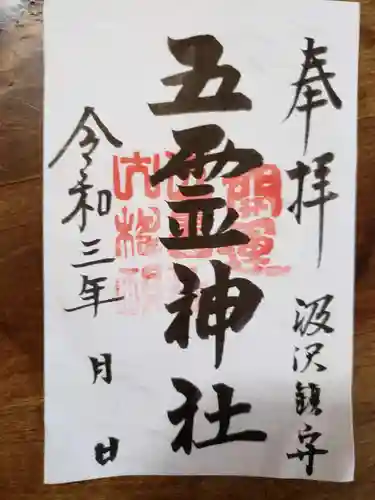 奉拝
汲沢鎮守
五霊神社
開運
令和三年
月
日